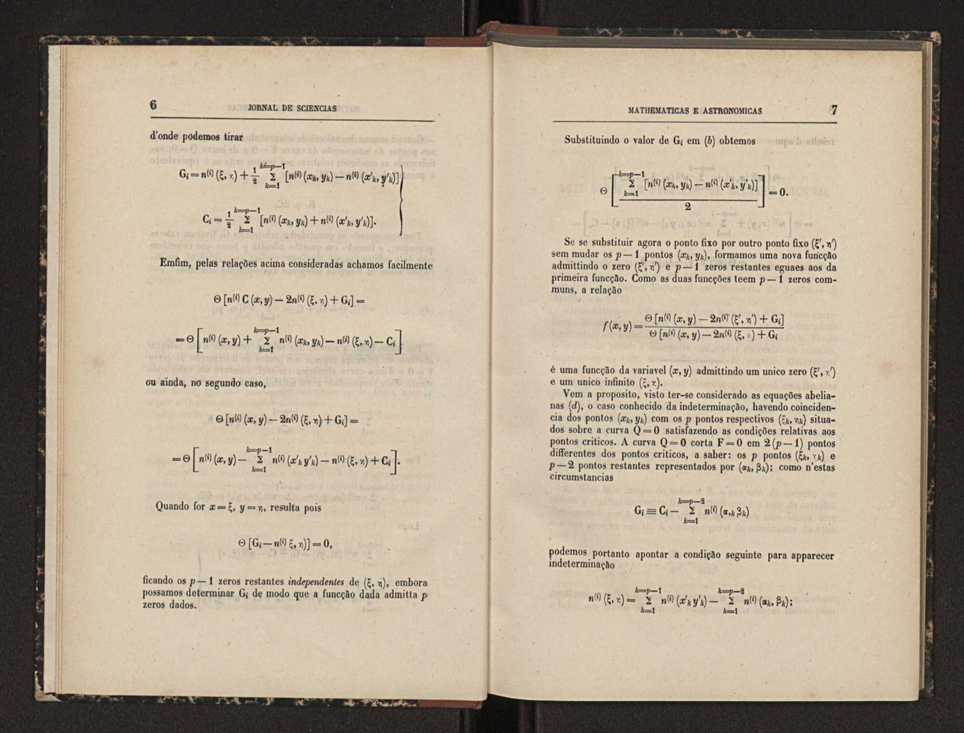 6 JORNAL DE SCIENCIAS
d'onde podemos tirar
G_i = n^(i) (ξ, η) + 1/2 Σ_{k=1}^{k=p−1} [n^(i) (x_k, y_k) — n^(i) (x'_k, y'_k)]
C_i = 1/2 Σ_{k=1}^{k=p−1} [n^(i) (x_k, y_k) + n^(i) (x'_k, y'_k)].
Emfim, pelas relações acima consideradas achamos facilmente
Θ [n^(i) C (x, y) — 2n^(i) (ξ, η) + G_i] =
= Θ [n^(i) (x, y) + Σ_{k=1}^{k=p−1} n^(i) (x_k, y_k) — n^(i) (ξ, η) — C_i]
ou ainda, no segundo caso,
Θ [n^(i) (x, y) — 2n^(i) (ξ, η) + G_i] =
= Θ [n^(i) (x, y) — Σ_{k=1}^{k=p−1} n^(i) (x'_k y'_k) — n^(i) (ξ, η) + C_i].
Quando for x = ξ, y = η, resulta pois
Θ [G_i — n^(i) ξ, η)] = 0,
ficando os p — 1 zeros restantes independentes de (ξ, η), embora
possamos determinar G_i de modo que a funcção dada admitta p
zeros dados.
MATHEMATICAS E ASTRONOMICAS 7
Substituindo o valor de G_i em (b) obtemos
Θ [ Σ_{k=1}^{k=p−1} [n^(i) (x_k, y_k) — n^(i) (x'_k, y'_k)] / 2 ] = 0.
Se se substituir agora o ponto fixo por outro ponto fixo (ξ', η')
sem mudar os p — 1 pontos (x_k, y_k), formamos uma nova funcção
admittindo o zero (ξ', η') e p — 1 zeros restantes eguaes aos da
primeira funcção. Como as duas funcções teem p — 1 zeros com-
muns, a relação
f (x, y) = Θ [n^(i) (x, y) — 2n^(i) (ξ', η') + G_i] / Θ [n^(i) (x, y) — 2n^(i) (ξ, η) + G_i
é uma funcção da variavel (x, y) admittindo um unico zero (ξ', η')
e um unico infinito (ξ, η).
Vem a proposito, visto ter-se considerado as equações abelia-
nas (d), o caso conhecido da indeterminação, havendo coinciden-
cia dos pontos (x_k, y_k) com os p pontos respectivos (ξ_k, η_k) situa-
dos sobre a curva Q = 0 satisfazendo as condições relativas aos
pontos criticos. A curva Q = 0 corta F = 0 em 2 (p — 1) pontos
differentes dos pontos criticos, a saber: os p pontos (ξ_k, η_k) e
p — 2 pontos restantes representados por (α_k, β_k); como n'estas
circumstancias
G_i ≡ C_i — Σ_{k=1}^{k=p−2} n^(i) (α,_k β_k)
podemos portanto apontar a condição seguinte para apparecer
indeterminação
n^(i) (ξ, η) = Σ_{k=1}^{k=p−1} n^(i) (x'_k y'_k) — Σ_{k=1}^{k=p−2} n^(i) (α_k, β_k);